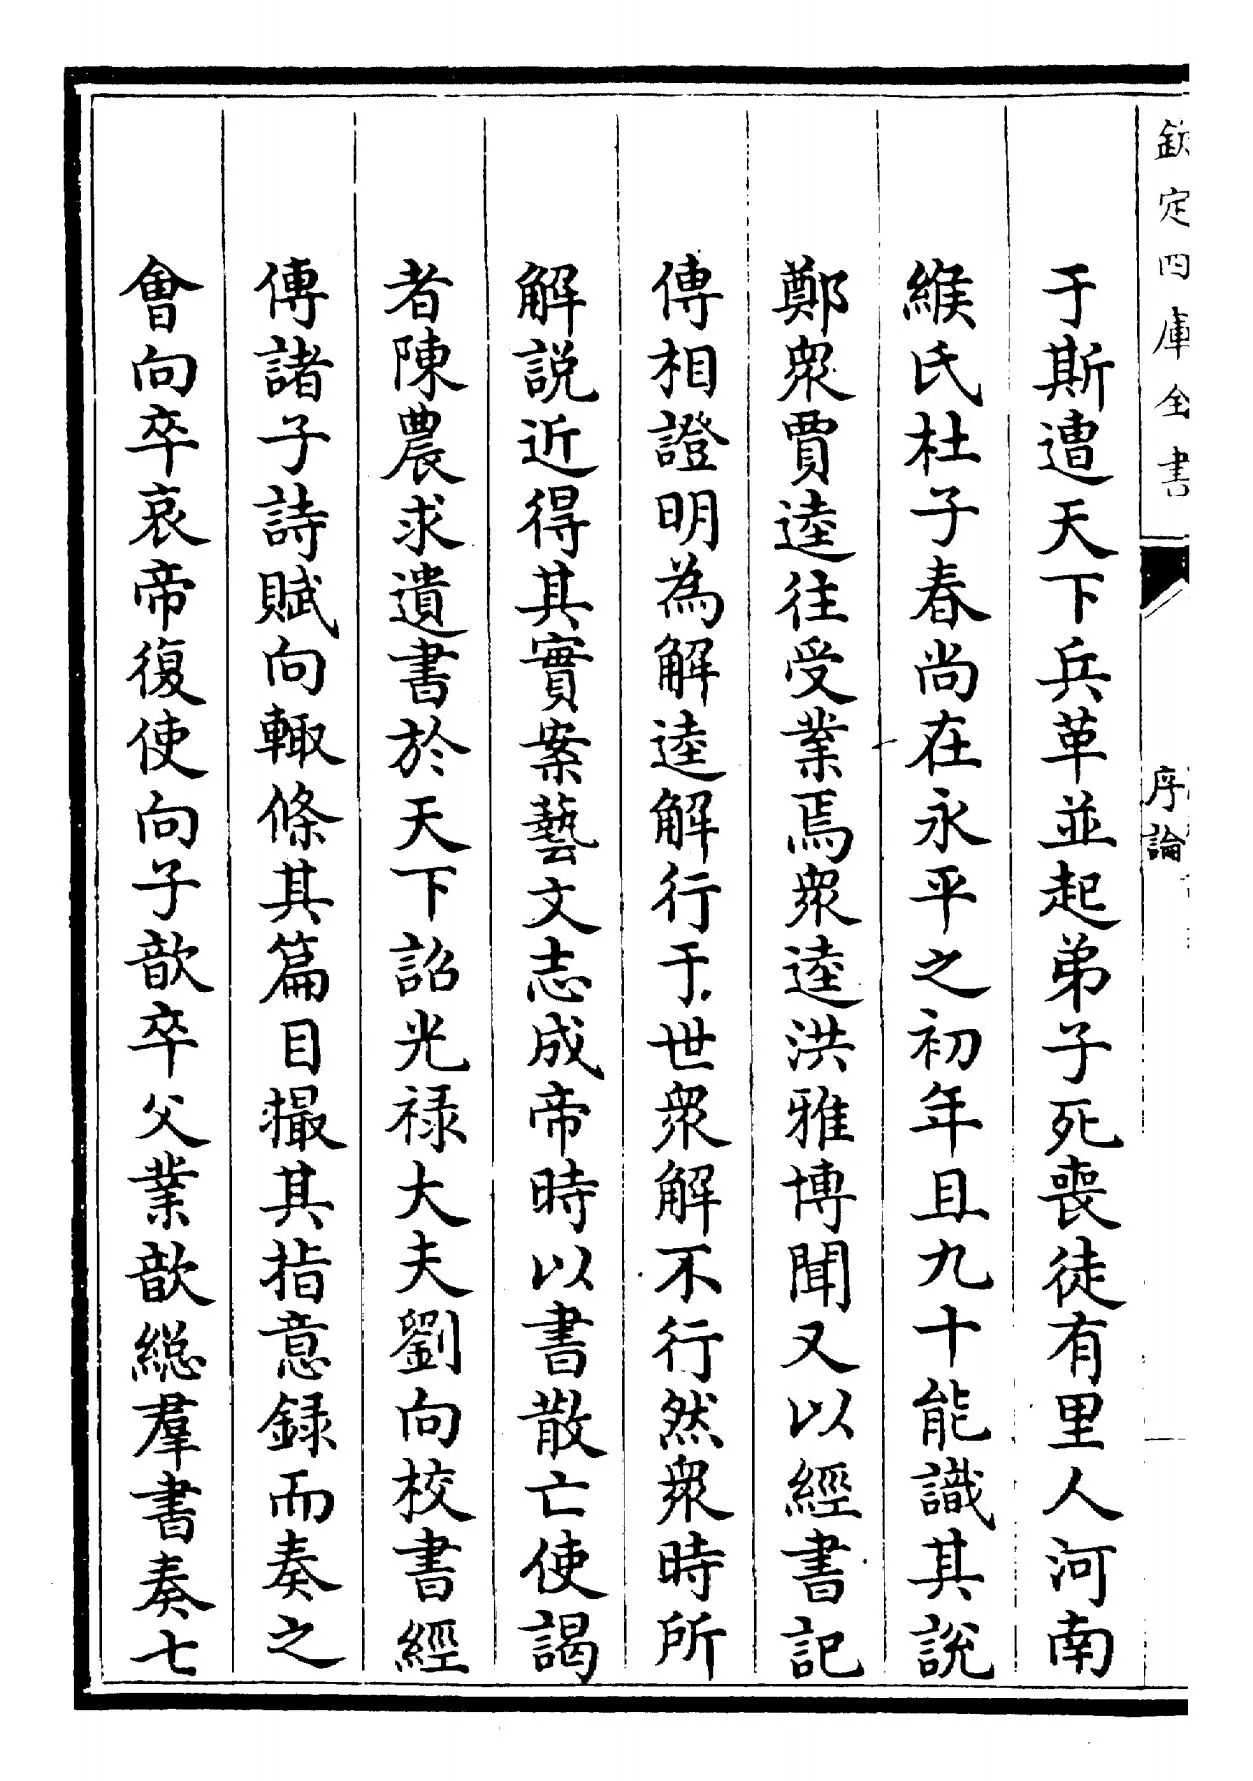 欽定四庫全書
序論
于斯遭天下兵革並起弟子死喪徒有里人河南
緱氏杜子春尚在永平之初年且九十能識其說
鄭眾賈逵往受業焉眾逵洪雅博聞又以經書記
傳相證明為解逵解行于世眾解不行然眾時所
解說近得其實案藝文志成帝時以書散亡使謁
者陳農求遺書於天下詔光禄大夫劉向校書經
傳諸子詩賦向輙條其篇目撮其指意録而奏之
會向卒哀帝復使向子歆卒父業歆総羣書奏七